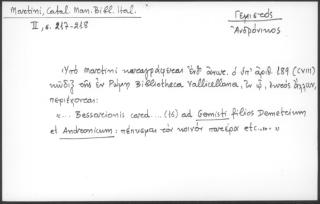 Martini, Catal. Man. Bibl. Ital.
II, σ. 217-218
Γεμιστός
Ἀνδρόνικος
Ὑπὸ Martini καταγράφεται ἐνθ' ἀνωτ. ὁ ὑπ' ἀριθ. 189 (CVIII)
κῶδιξ τῆς ἐν Ῥώμῃ Bibliotheca Vallicellana, ἐν ᾧ, ἐκτὸς ἄλλων,
περιέχονται:
«... Bessarionis card.... (16) ad Gemisti filios Demetrium
et Andronicum: πέπυσμαι τὸν κοινὸν πατέρα etc....»